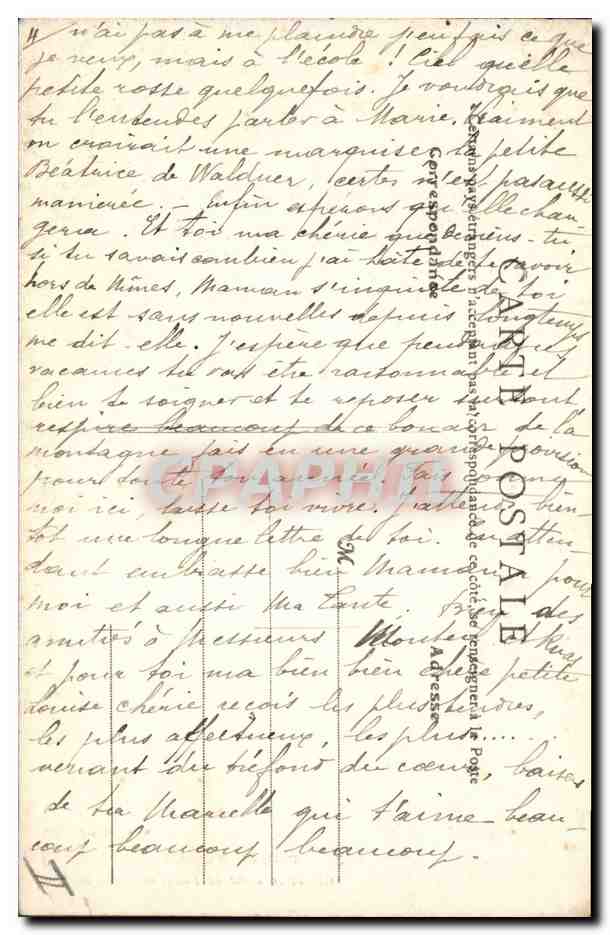 4 n'ai pas à me plaindre j'en fais ce que
je veux, mais à l'école ! Ciel quelle
petite rosse quelquefois. Je voudrais que
tu l'entendes parler à Marie. Vraiment
on croirait une marquise, la petite
Béatrice de Waldner, certes n'est pas aussi
maniérée. - Enfin espérons qu'elle chan-
gera. Et toi ma chérie que deviens-tu
si tu savais combien j'ai hâte de te savoir
hors de Nîmes, Maman s'inquiète de toi
elle est sans nouvelles depuis longtemps
me dit-elle. J'espère que pendant
vacances tu vas être raisonnable et
bien te soigner et te reposer surtout
respire beaucoup de ce bon air de la
montagne fais en une grande provision
pour toute ton année. Fais comme
moi ici, laisse toi vivre. J'attends bien-
tôt une longue lettre de toi. En atten-
dant embrasse bien Maman pour
moi et aussi Ma Tante. Bien des
amitiés à Messieurs
et pour toi ma bien bien chère petite
Louise chérie reçois les plus tendres,
les plus affectueux, les plus.....
venant du tréfond du cœur, baisers
de ta Marcelle qui t'aime beau-
coup beaucoup beaucoup.
II
CARTE POSTALE
Certains pays étrangers n'acceptant pas la correspondance de ce côté, se renseigner à la Poste
Correspondance
Adresse
M
CPAPHIL